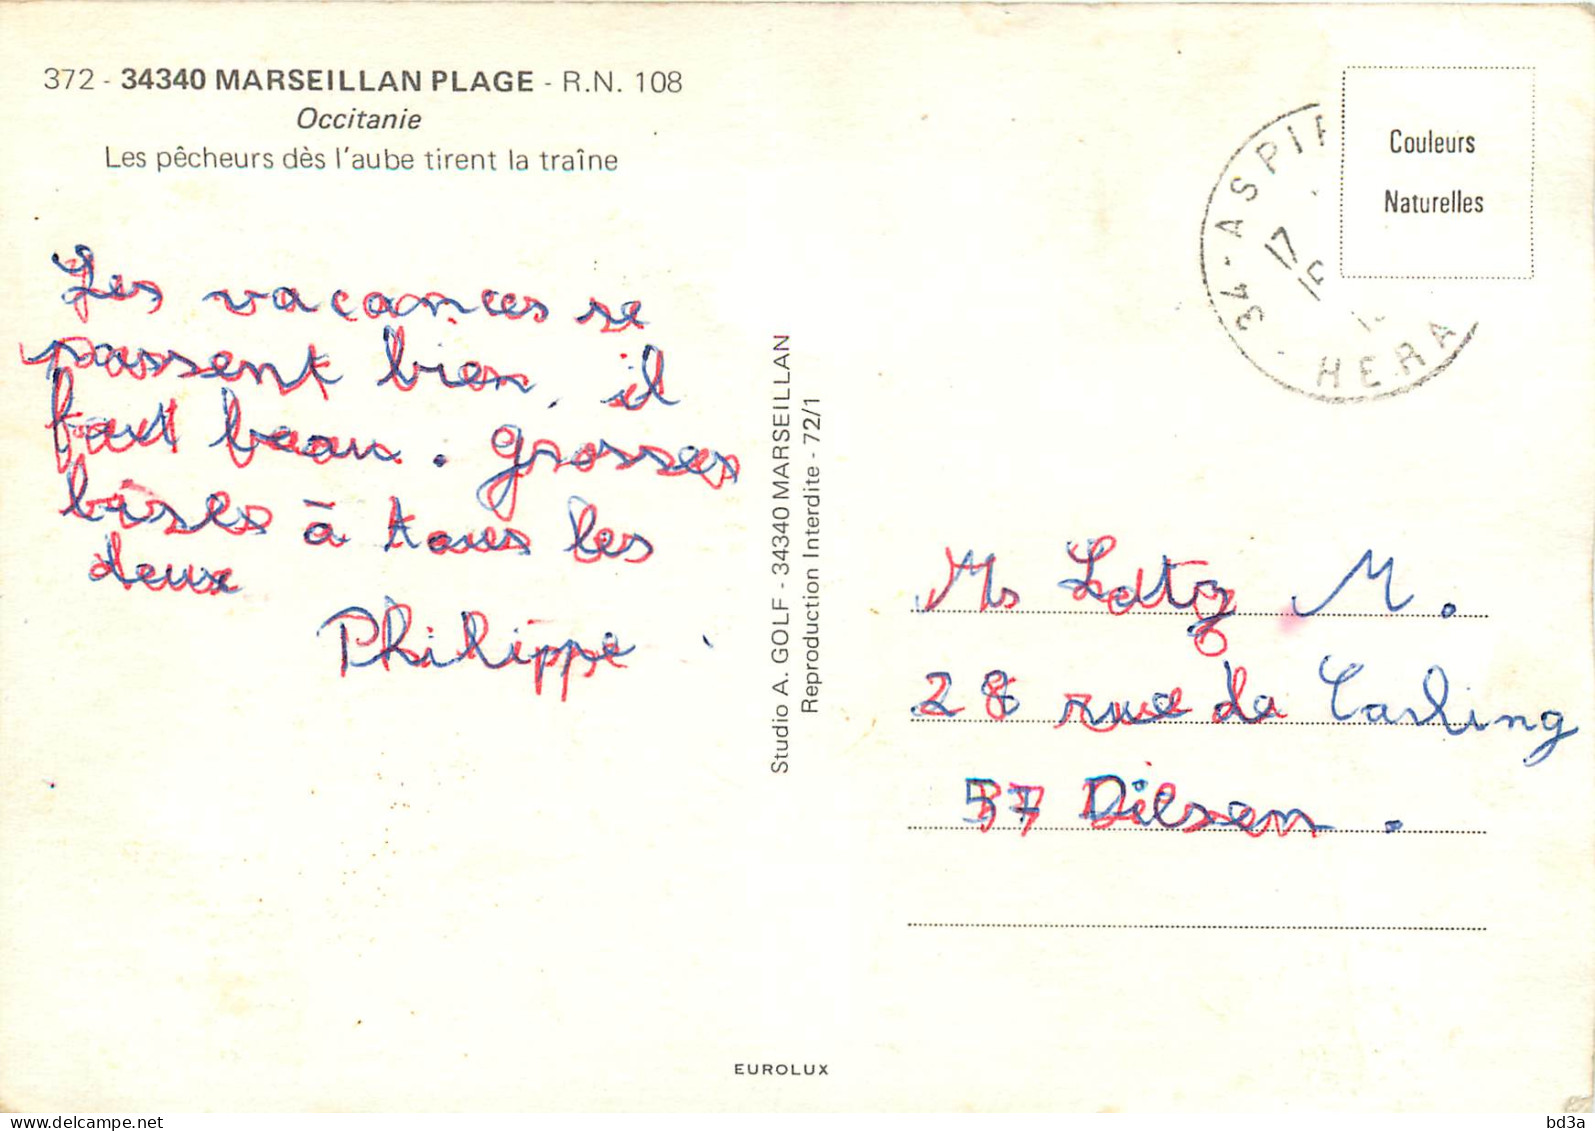 372 - 34340 MARSEILLAN PLAGE - R.N. 108
Occitanie
Les pêcheurs dès l'aube tirent la traîne
Les vacances se
passent bien, il
faut beau. grosses
bises à tous les
deux
Philippe
Studio A. GOLF - 34340 MARSEILLAN
Reproduction Interdite - 72/1
34 - ASPIR
17
HERA
Couleurs
Naturelles
Ms M.
28 rue de Carling
57 Dilsen.
EUROLUX
www.delcampe.net
bd3a